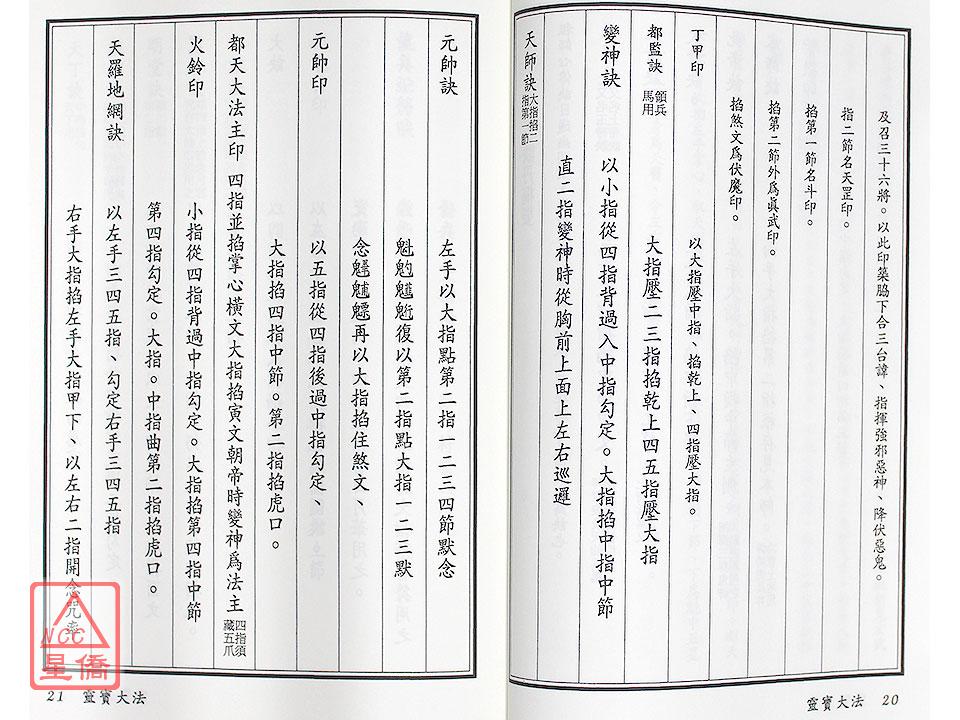 及召三十六將。以此印築脇下合三台諱、指揮強邪惡神、降伏惡鬼。
指二節名天罡印。
掐第一節名斗印。
掐第二節外爲眞武印。
掐煞文爲伏魔印。
丁甲印
以大指壓中指、掐乾上、四指壓大指。
都監訣 領兵馬用
大指壓二三指掐乾上四五指壓大指
變神訣
以小指從四指背過入中指勾定。大指掐中指中節
直二指變神時從胸前上面上左右巡邏
天師訣 大指掐二指第一節
靈寶大法 20
元帥訣
左手以大指點第二指一二三四節默念
魁䰢魓復以第二指點大指一二三默
念 再以大指掐住煞文、
元帥印
以五指從四指後過中指勾定、
大指掐四指中節。第二指掐虎口。
都天大法主印 四指並掐掌心橫文大指掐寅文朝帝時變神爲法主 四指須藏五爪
火鈴印
小指從四指背過中指勾定。大指掐第四指中節
第四指勾定。大指。中指曲第二指掐虎口。
天羅地網訣
以左手三四五指、勾定右手三四五指
右手大指掐左手大指甲下、以左右二指開念咒
21 靈寶大法
NCC
星僑